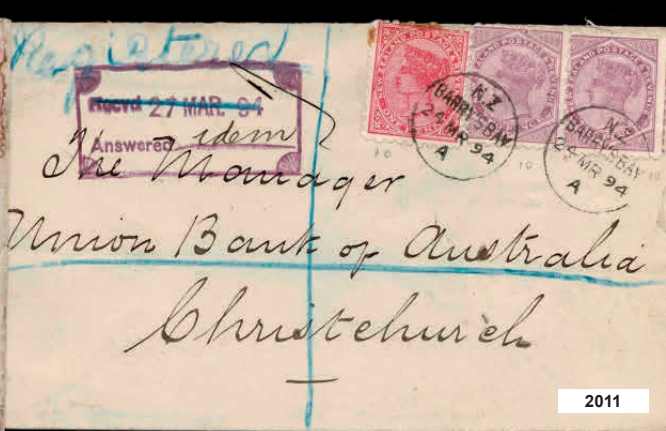 Registered
Recvd 27 MAR. 94
Answered idem
N.Z
BARRYS BAY
24 MR 94
A
N.Z
BARRYS BAY
24 MR 94
A
The Manager
Union Bank of Australia
Christchurch
2011